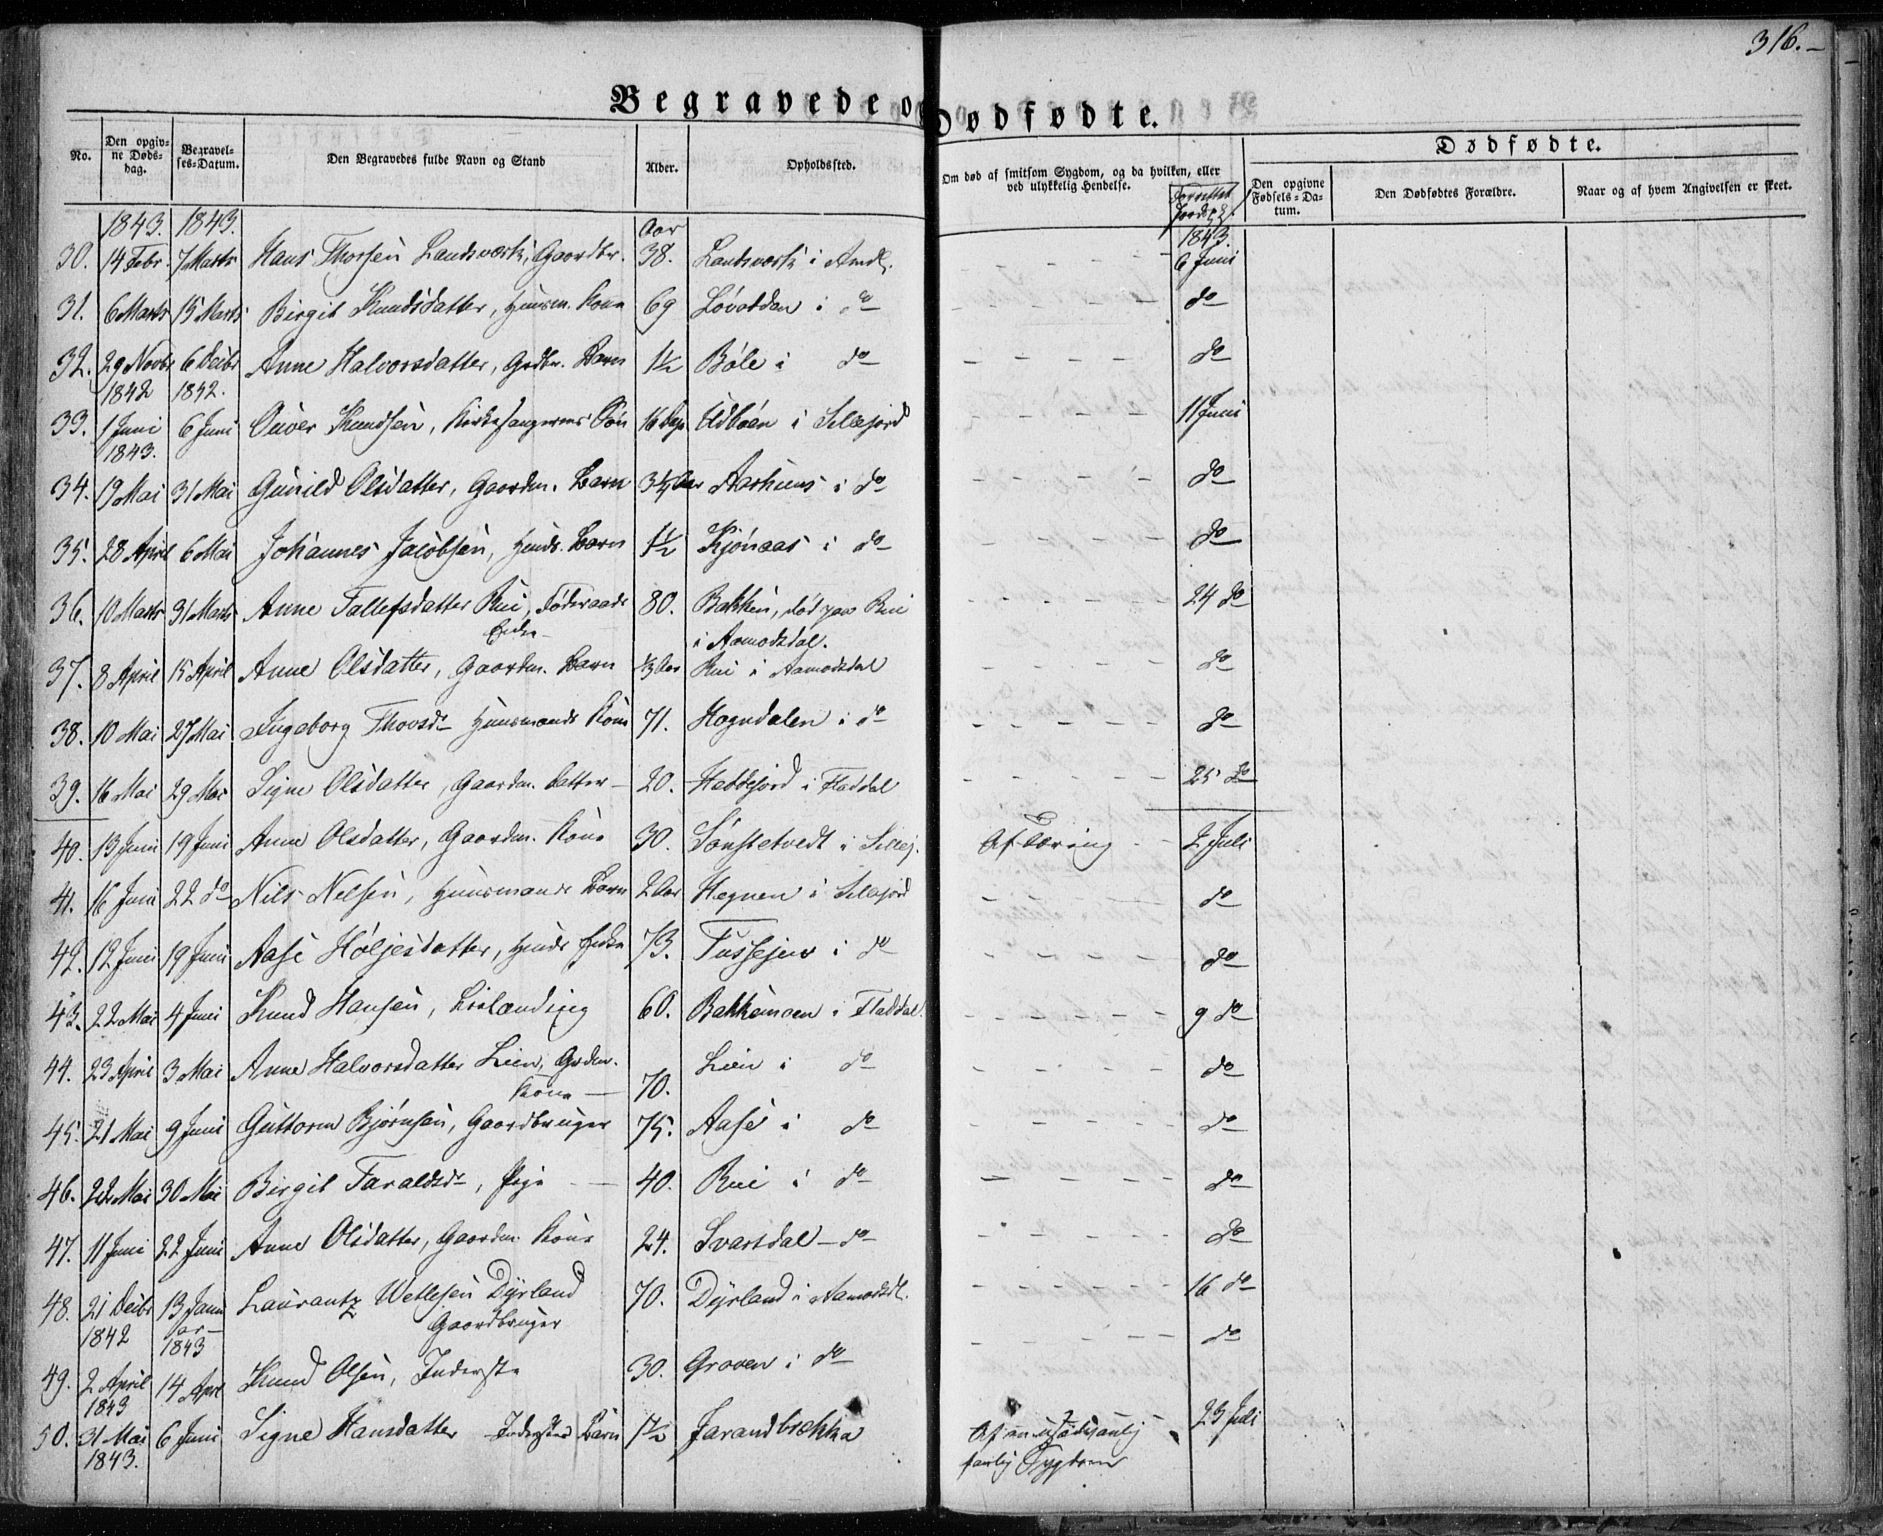 316.-
Begravede o Dødfødte.
No. Den opgivne Dødsdag. Begravelses-Datum. Den Begravedes fulde Navn og Stand Alder. Opholdssted. Om død af smitsom Sygdom, og da hvilken, eller ved ulykkelig Hendelse. Dødfødte. Den opgivne Fødsels-Datum. Den Dødfødtes Forældre. Naar og af hvem Angivelsen er skeet.
1843. 1843. Aar 1843.
30. 14 Febr. 7 Marts Hans Thorsen Landsværk, Gaardbr. 38. Landsværk i Amdl. 6 Juni
31. 6 Marts 15 Marts Birgit Knudsdatter, Huusm. Kone 69 Løvodden i do do
32. 29 Novbr 1842 6 Decbr 1842. Anne Halvorsdatter, Grdbr. Barn 1½ Bøle i do do
33. 1 Juni 1843. 6 Juni Knudsen, Kirkesangerens Søn 16 Dage Udbøen i Silefjord 11 Juni
34. 19 Mai 31 Mai Gunild Olsdatter, Gaardm. Barn 3½ Aar Aarhuus i do do
35. 28 April 6 Mai Johannes Jacobsen, Huusm. Barn 1½ Kjønaas i do do
36. 10 Marts 31 Marts Anne Tallefsdatter Rui, Føderaads Enke 80. Bakken, død paa Rui i Aamodsdal. 24 do
37. 8 April 15 April Anne Olsdatter, Gaardm. Barn ⅓ Aar Rui i Aamodsdal do
38. 10 Mai 27 Mai Ingeborg Thovsdr Huusmands Kone 71. Hogndalen i do do
39. 16 Mai 29 Mai Signe Olsdatter, Gaardm. Datter 20. Haddefjord i Fladdal 25 do
40. 13 Juni 19 Juni Anne Olsdatter, Gaardm. Kone 30. Sønstetvedt i Sillej. Af Tæring 2 Juli
41. 16 Juni 22 do Nils Nelsen, Huusmands Barn 2 Aar Hegnen i Silefjord do
42. 12 Juni 19 Juni Aase Høljesdatter, Huusm Enke 73. i do do
43. 22 Mai 4 Juni Knud Hansen, Leilænding 60. Bakkemoen i Fladdal. 9 do
44. 23 April 3 Mai Anne Halvorsdatter Lien, Grdm. Kone 70. Lien i do do
45. 21 Mai 9 Juni Guttorm Bjørnsen, Gaardbruger 75. Aase i do do
46. 22 Mai 30 Mai Birgit Taraldsdr, Pige 40. Rui i do do
47. 11 Juni 22 Juni Anne Olsdatter, Gaardm. Kone 24. Svartdal do do
48. 21 Decbr 1842 13 Januar 1843 Laurantz Wetlesen Dyrland Gaardbruger 70. Dyrland i Aamodsdl. 16 do
49. 2 April 1843 14 Apr Knud Olsen, Inderste 30. Groven i do do
50. 31 Mai 1843. 6 Juni Signe Hansdatter Inderstes Barn 1½ Jarandbrække Af en usædvanlig Sygdom 23 Juli